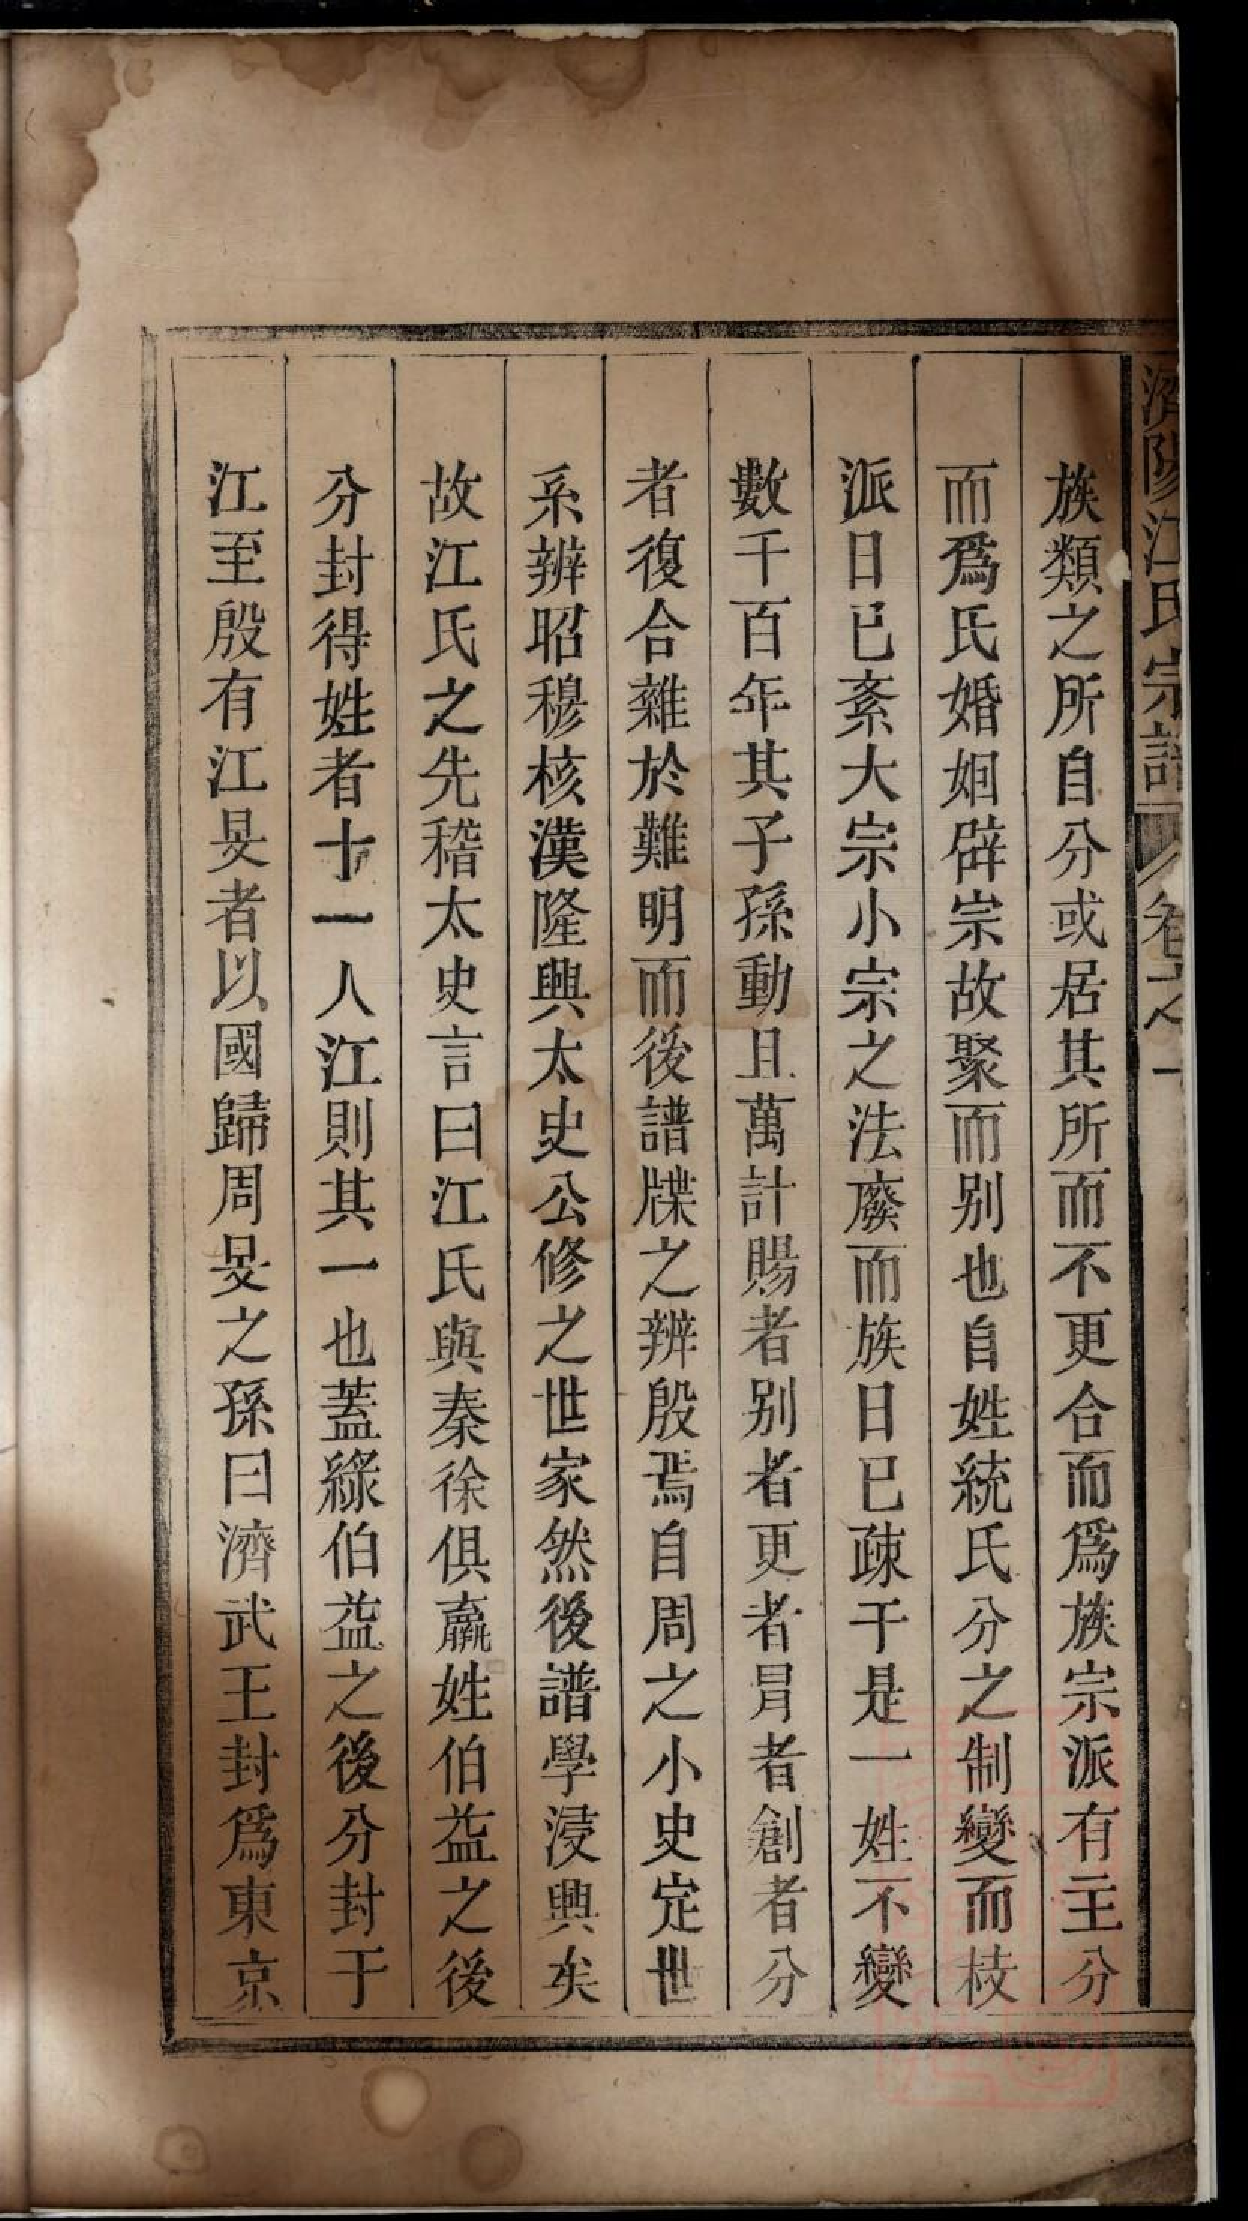 濟陽江氏宗譜 卷之一
族類之所自分或居其所而不更合而爲族宗派有主分
而爲氏婚姻辟宗故聚而别也自姓統氏分之制變而枝
派日已紊大宗小宗之法廢而族日已疎于是一姓不變
數千百年其子孫動且萬計賜者别者更者冐者創者分
者復合雜於難明而後譜牒之辨殷焉自周之小史定世
系辨昭穆核漢隆興太史公修之世家然後譜學浸興矣
故江氏之先稽太史言曰江氏與秦徐俱嬴姓伯益之後
分封得姓者十一人江則其一也蓋綠伯益之後分封于
江至殷有江旻者以國歸周旻之孫曰濟武王封爲東京